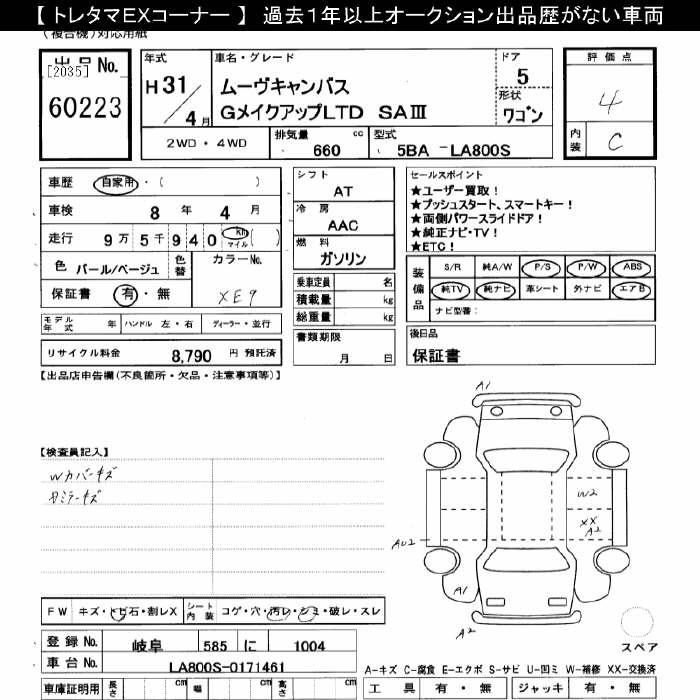 【 トレタマEXコーナー 】 過去1年以上オークション出品歴がない車両
(複合機)対応用紙
出品No.
[2035]
60223
年式
H 31/4月
車名・グレード
ムーヴキャンバス
GメイクアップLTD SAⅢ
ドア
5
形状
ワゴン
2WD・4WD
排気量 cc
660
型式
5BA -LA800S
評価点
4
内装
C
車歴 自家用・( )
車検 8年 4月
走行 9万5千940 Km マイル ( )
色 パール/ベージュ 色替
カラーNo.
XE9
保証書 有・無
モデル年式 年 ハンドル 左・右 ディーラー・並行
リサイクル料金 8,790 円 預託済
シフト
AT
冷房
AAC
燃料
ガソリン
乗車定員 名
積載量 kg
総重量 kg
書類期限
月 日
セールスポイント
★ユーザー買取！
★プッシュスタート、スマートキー！
★両側パワースライドドア！
★純正ナビ・TV！
★ETC！
装備品
S/R 純A/W P/S P/W ABS
純TV 純ナビ 革シート 外ナビ エアB
ナビ型番：
後日品
保証書
【出品店申告欄(不良箇所・欠品・注意事項等)】
【検査員記入】
Wカバーキズ
ミラーキズ
A1
W2
XX
A2
AU2
A1
A2
スペア
FW キズ・トビ石・割レX シート内装 コゲ・穴・汚レ・シミ・破レ・スレ
登録No. 岐阜 585 に 1004
車台No. LA800S-0171461
車庫証明用 長さ cm 幅 cm 高さ cm
A-キズ C-腐食 E-エクボ S-サビ U-凹ミ W-補修 XX-交換済
工具 有・無 ジャッキ 有・無